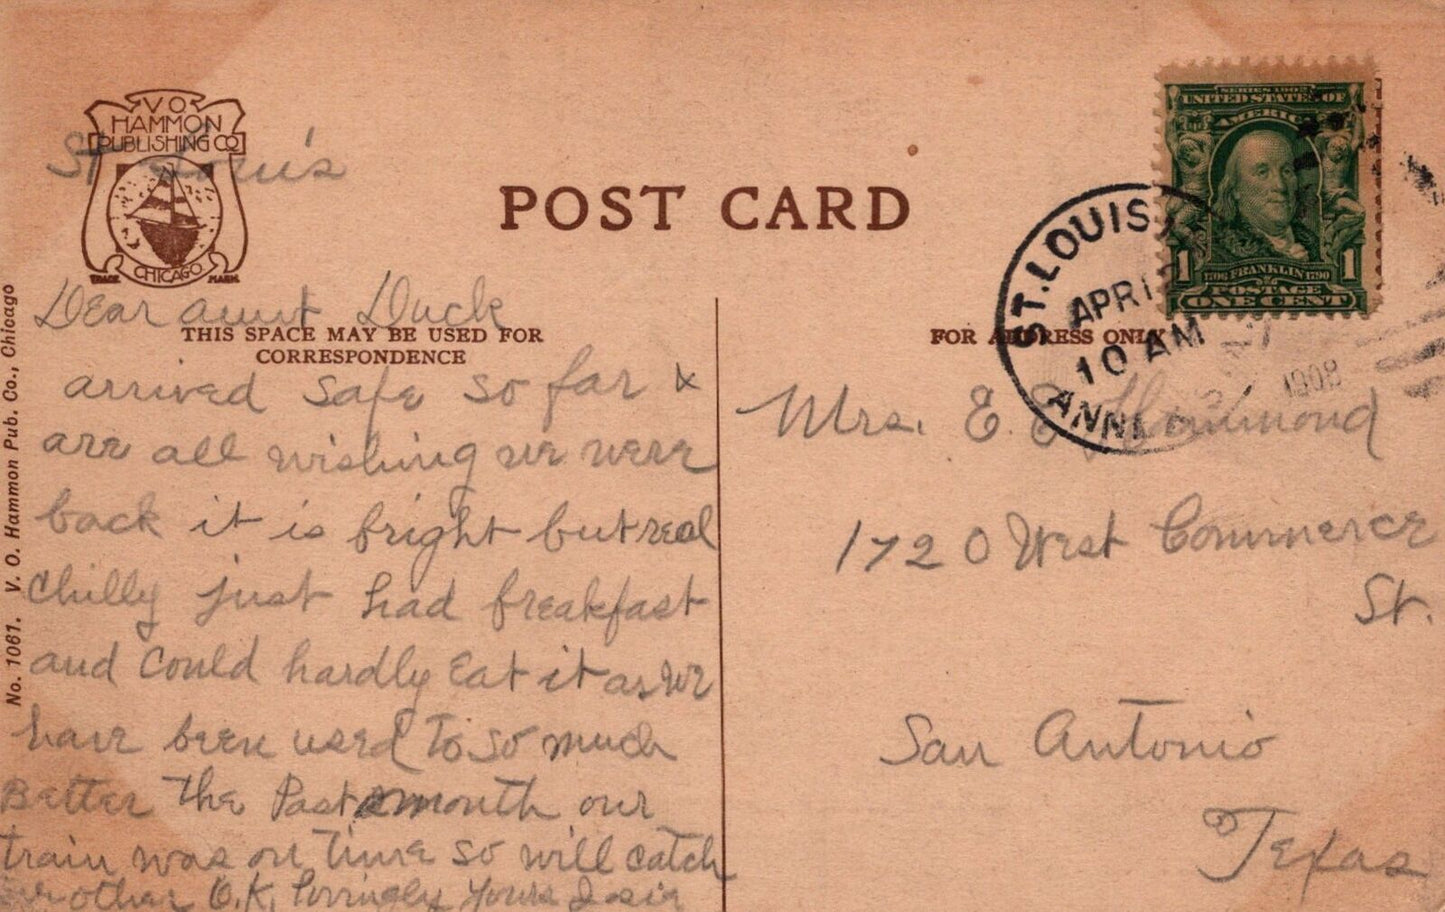 V.O.
HAMMON
PUBLISHING CO
CHICAGO
TRADE MARK
No. 1061. V. O. Hammon Pub. Co., Chicago
POST CARD
THIS SPACE MAY BE USED FOR
CORRESPONDENCE
FOR ADDRESS ONLY
SERIES 1902
UNITED STATES OF
AMERICA
1 1706 FRANKLIN 1790 1
POSTAGE
ONE CENT
ST. LOUIS
APR 12
10 AM
1908
St Louis
Dear aunt Duck
arrived safe so far &
are all wishing we were
back it is bright but real
chilly just had breakfast
and could hardly eat it as we
have been used to so much
Better the Past month our
train was on time so will catch
other O.K. Lovingly yours
Mrs. E. E. Hammond
1720 West Commerce
St.
San Antonio
Texas